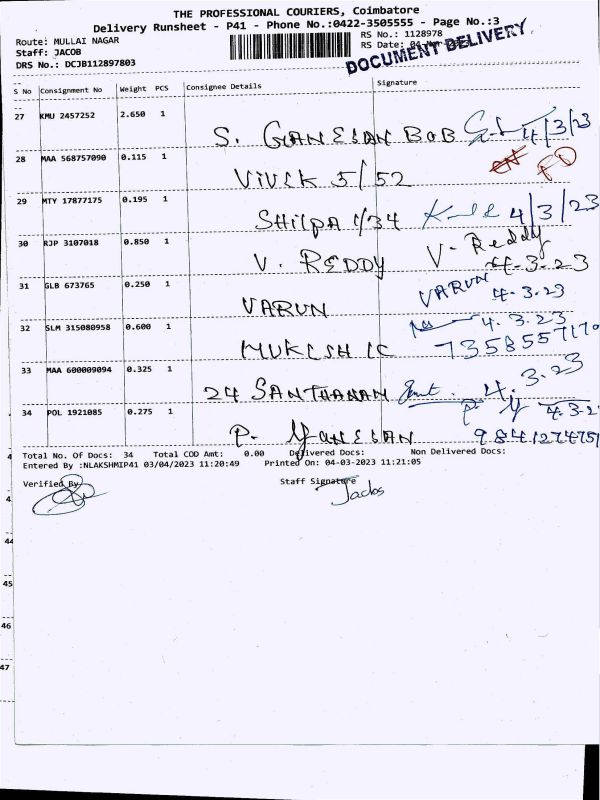 THE PROFESSIONAL COURIERS, Coimbatore
Delivery Runsheet - P41 - Phone No.:0422-3505555 - Page No.:3
Route: MULLAI NAGAR
Staff: JACOB
DRS No.: DCJB112897803
RS No.: 1128978
RS Date:
DOCUMENT DELIVERY
S No Consignment No Weight PCS Consignee Details Signature
27 KMU 2457252 2.650 1
S. GANESAN BOB 4/3/23
28 MAA 568757090 0.115 1
VIVEK 5/52
29 MTY 17877175 0.195 1
SHILPA 1/34 4/3/23
30 RJP 3107018 0.850 1
V. REDDY V. Reddy
4-3-23
31 GLB 673765 0.250 1
VARUN VARUN 4.3.23
32 SLM 315080958 0.600 1
MUKESH 4.3.23
7358557170
33 MAA 600009094 0.325 1
24 SANTHANAM 4.3.23
34 POL 1921085 0.275 1
P. GANESAN 4.3.2
9841274751
Total No. Of Docs: 34 Total COD Amt: 0.00 Delivered Docs: Non Delivered Docs:
Entered By :NLAKSHMIP41 03/04/2023 11:20:49 Printed On: 04-03-2023 11:21:05
Verified By Staff Signature
44
45
46
47